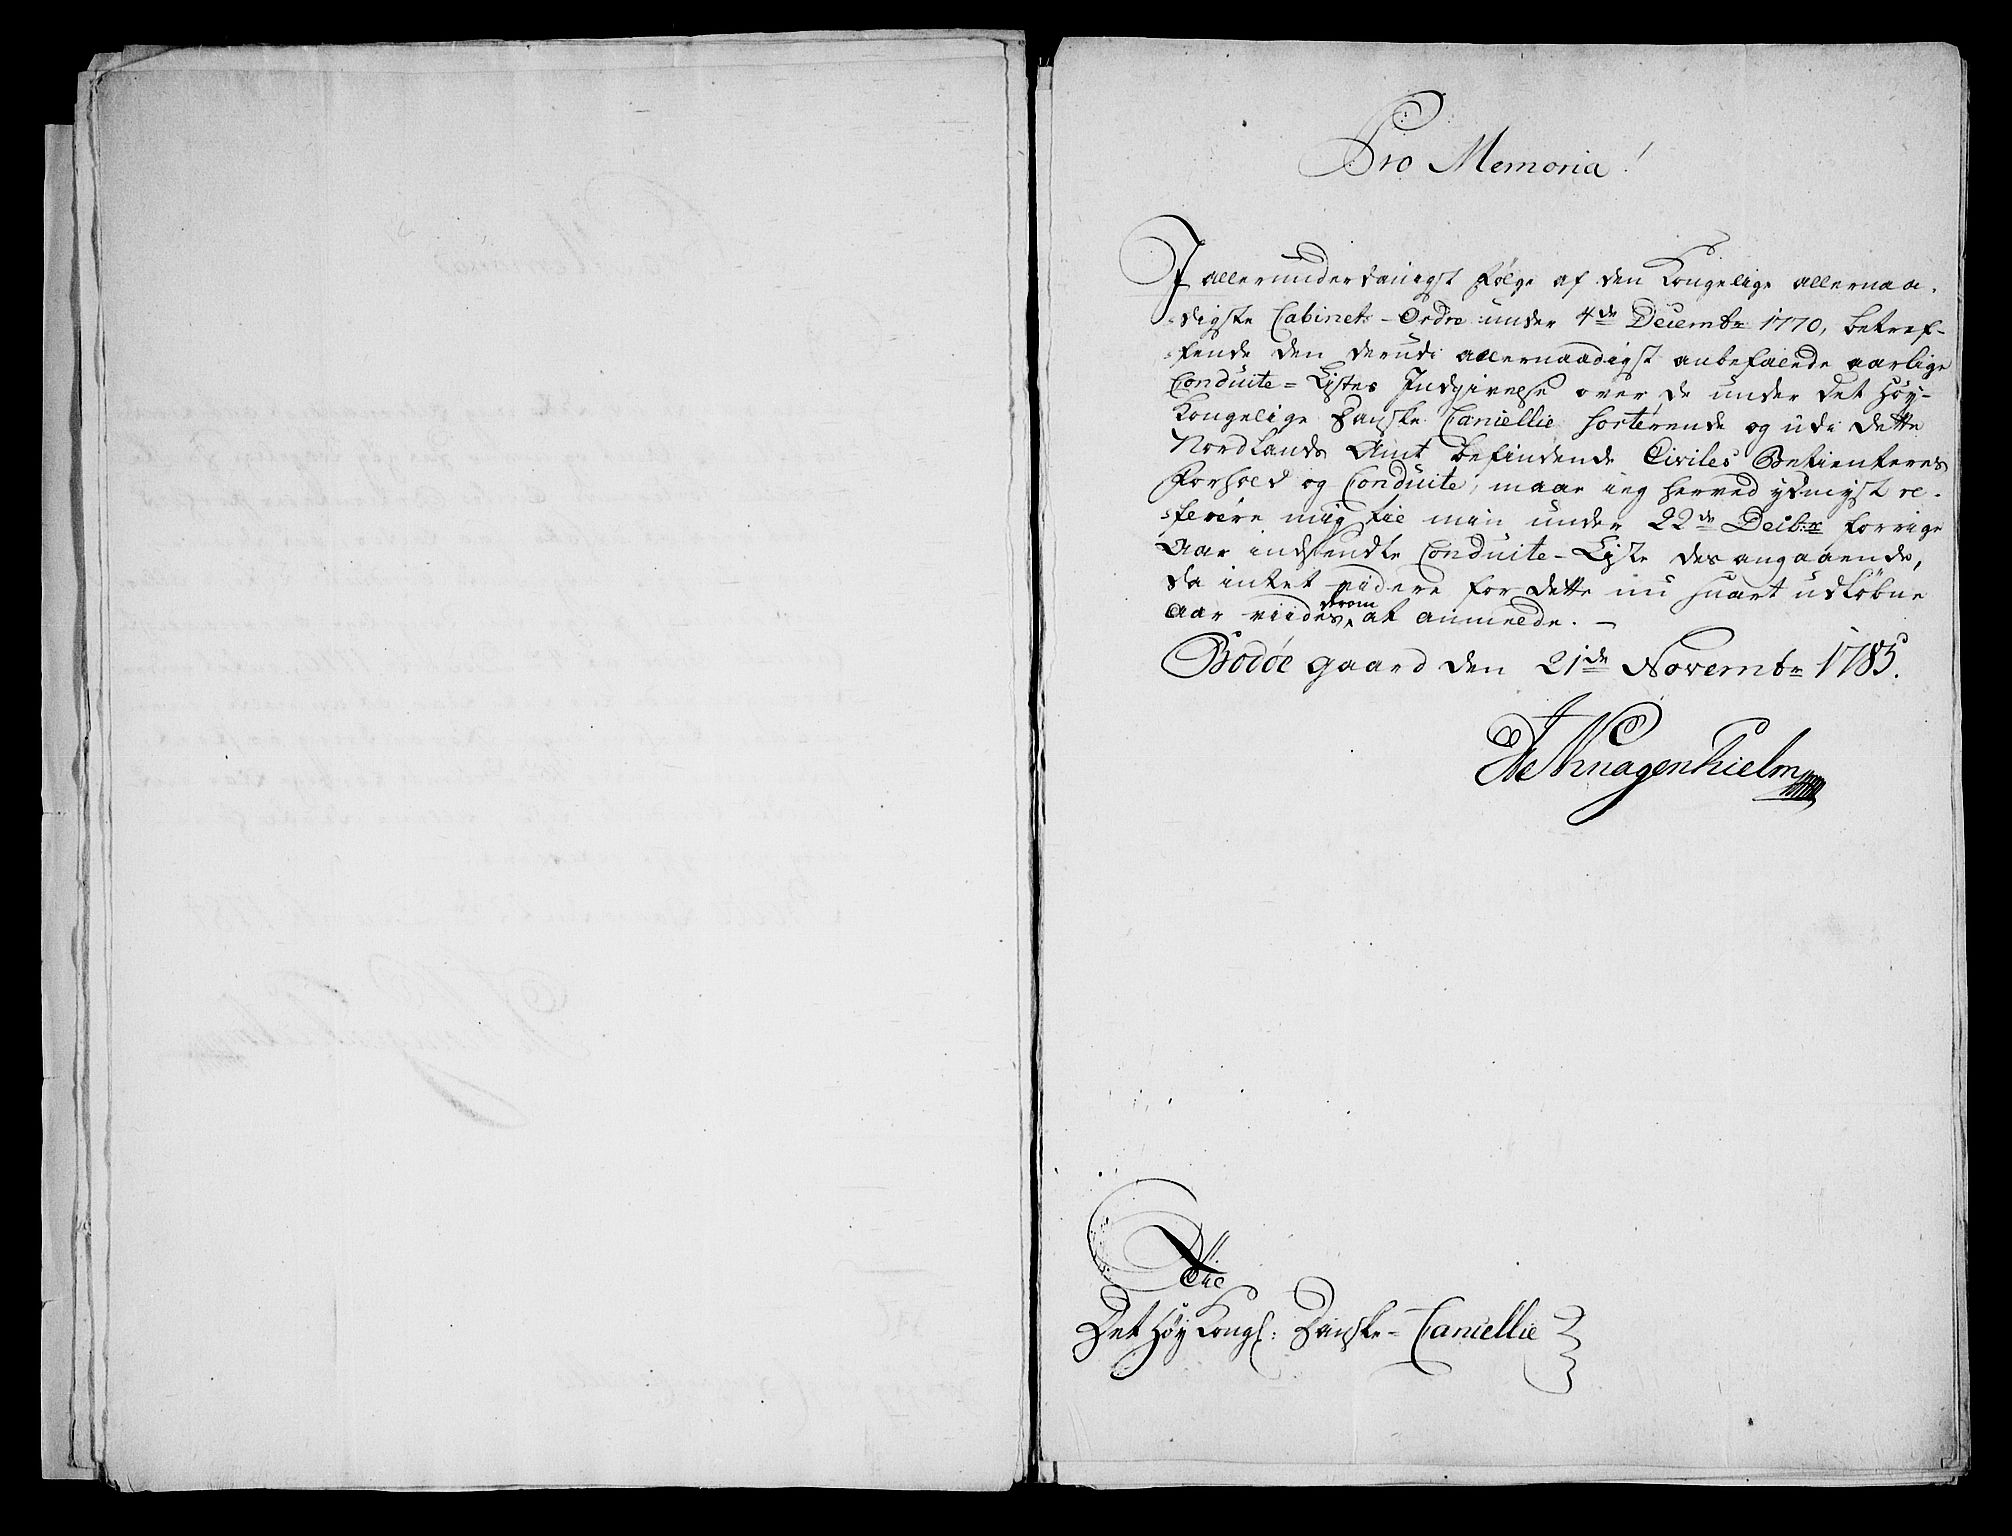 Pro Memoria!
I allerunderdanigst følge af den Kongelige allernaa-
digste Cabinets-Ordre under 4de Decembr 1770, betref-
fende den derudi allernaadigst anbefalede aarlige
Conduite-Listes Indgivelse over de under det Høy-
Kongelige Danske Cancellie sorterende og udi dette
Nordlands Amt befindende Civiles Betienteres
Forhold og Conduite, maae ieg herved ydmygst re-
ferere mig til min under 22de Decbr forrige
Aar indsendte Conduite-Liste desangaaende,
da intet videre for dette nu snart udløbne
Aar viides derom at anmelde. –
Bodøe gaard den 21de Novembr 1785.
Knagenhielm
Til
Det Høy Kongl: Danske-Cancellie